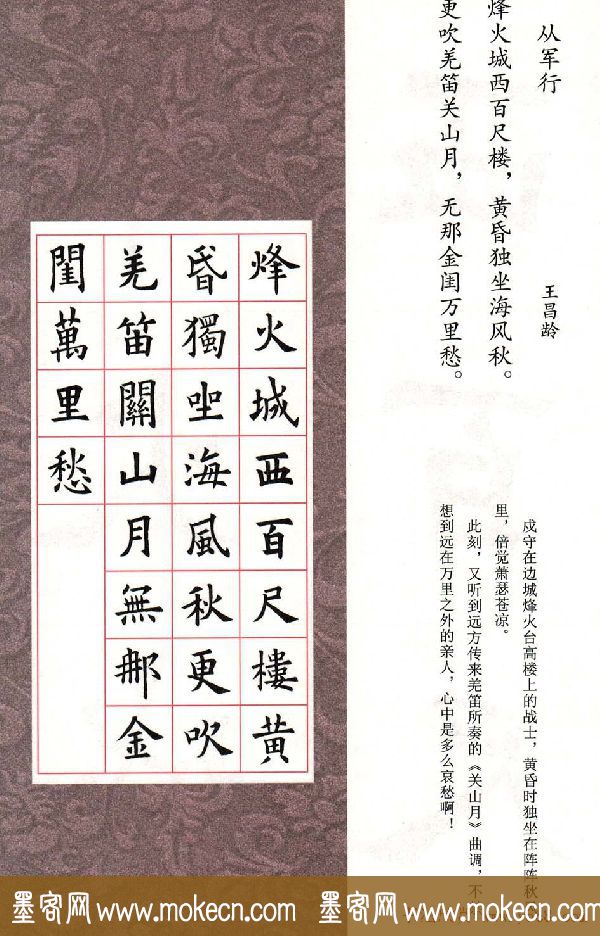 从军行
王昌龄
烽火城西百尺楼，黄昏独坐海风秋。
更吹羌笛关山月，无那金闺万里愁。
戍守在边城烽火台高楼上的战士，黄昏时独坐在阵阵秋
里，倍觉萧瑟苍凉。
此刻，又听到远方传来羌笛所奏的《关山月》曲调，不
想到远在万里之外的亲人，心中是多么哀愁啊！
烽火城西百尺樓黄
昏獨坐海風秋更吹
羌笛關山月無那金
閨萬里愁
墨客网 www.mokecn.com 墨客网 www.mokecn.com